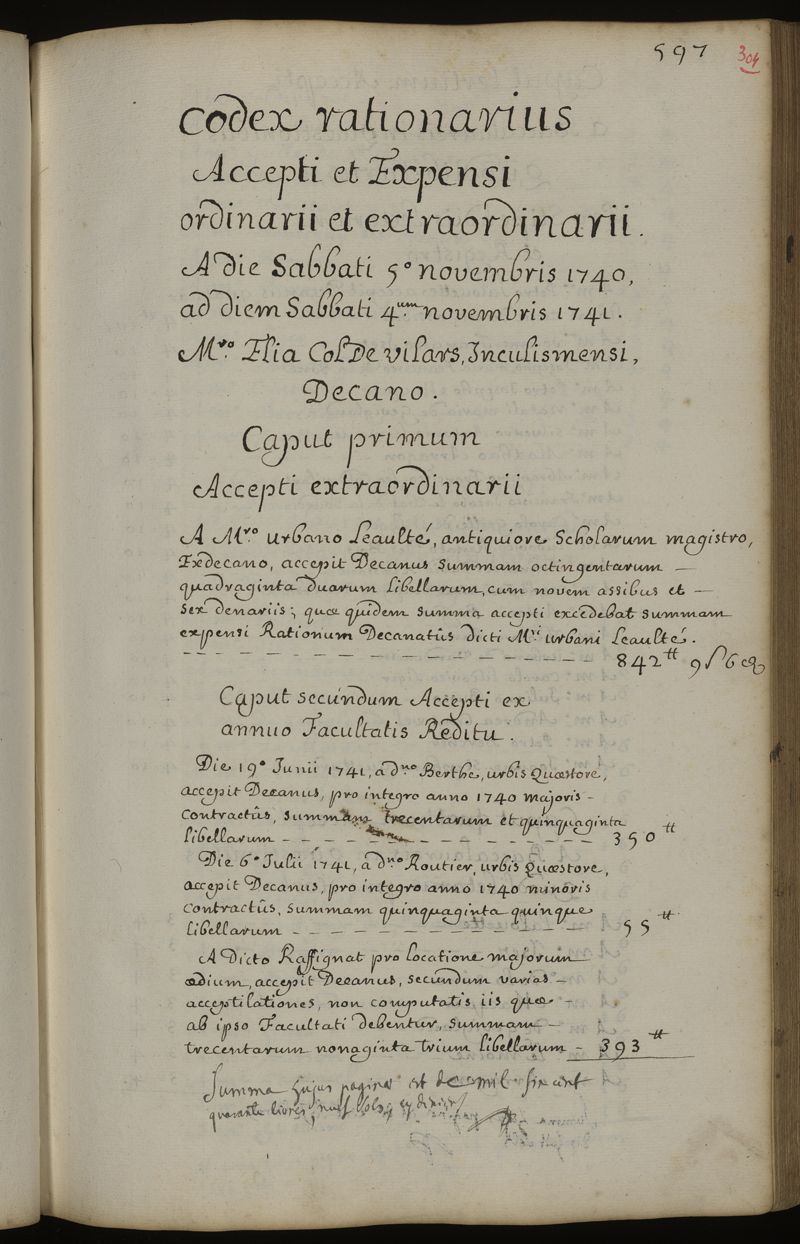 597 304
Codex rationarius
Accepti et Expensi
ordinarii et extraordinarii.
A die Sabbati 5º novembris 1740,
ad diem Sabbati 4um novembris 1741.
Mro Elia Col De vilars, Inculismensi,
Decano.
Caput primum
Accepti extraordinarii
A Mro Urbano Leaulté, antiquiore Scholarum magistro,
Exdecano, accepit Decanus summam octingentarum —
quadraginta duarum libellarum, cum novem assibus et —
sex denariis; quæ quidem summa accepti excedebat summam
expensi Rationum Decanatûs dicti Mri urbani Leaulté.
— — — — — — — — — — — — — — 842tt 9s 6d
Caput secundum Accepti ex
annuo Facultatis Reditu.
Die 19ª Junii 1741, a dno Berthe, urbis Quæstore,
accepit Decanus, pro integro anno 1740 majoris —
Contractûs, summam trecentarum et quinquaginta
libellarum — — — — — — — — — — 350tt
Die 6ª Julii 1741, a dno Routier, urbis Quæstore,
accepit Decanus, pro integro anno 1740 minoris
contractûs, summam quinquaginta quinque
libellarum — — — — — — — — — — 55tt
A Dicto Raffignat pro locatione majorum
ædium, accepit Decanus, secundum varias —
acceptilationes, non computatis iis quæ —
ab ipso Facultati debentur, summam —
trecentarum nonaginta trium libellarum — 393tt
Summa hujus paginæ est de mil six cent
quarante livres, neuf sols, six deniers